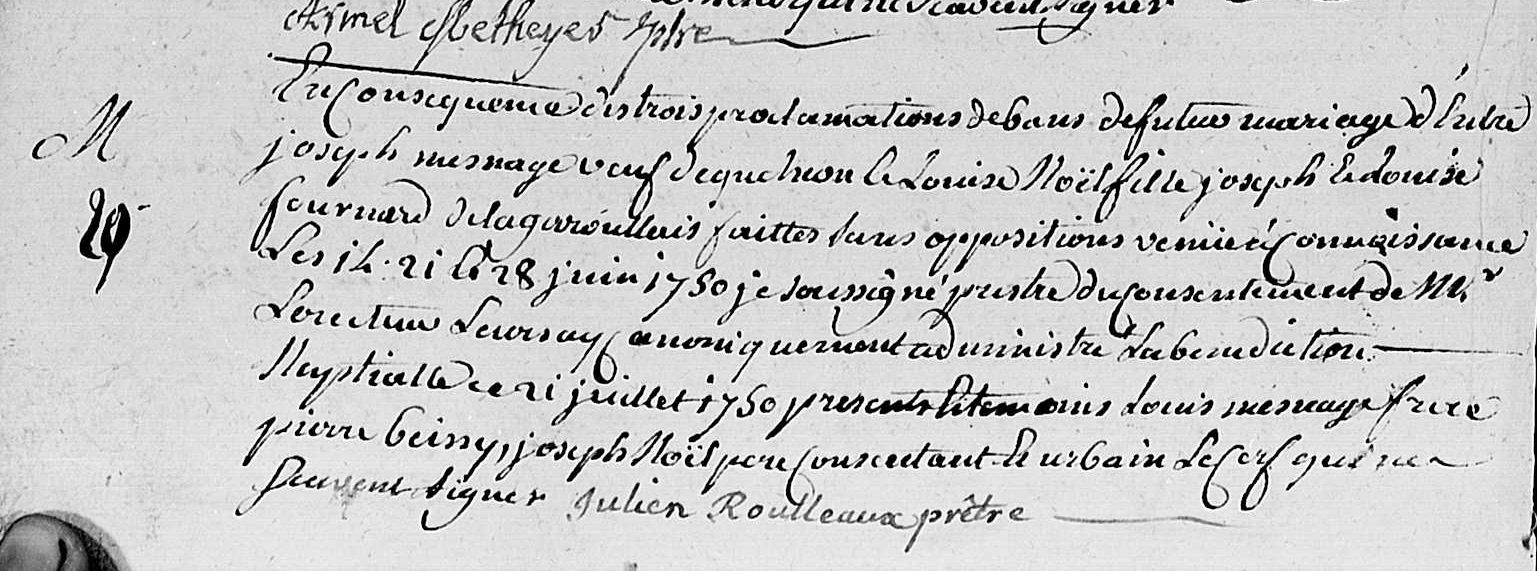 Armel Metheyes ptre
M
29
En Consequence des trois proclamations de bans de futur mariage d'Entre
joseph mesnage veuf de queheon & Louise Noël fille joseph & Louise
fournard de la garoullais faittes sans oppositions venüe à Connaissance
Les 14. 21 & 28 juin 1750 je soussigné prestre du Consentement de Mr
Le recteur Leur ay Canoniquement administré La benediction
Nuptialle ce 21 juillet 1750 presents & temoins Louis mesnage frere
pierre beissy, joseph Noël pere Consentant & urbain Le Cerf qui ne
scavent signer Julien Roulleaux prêtre